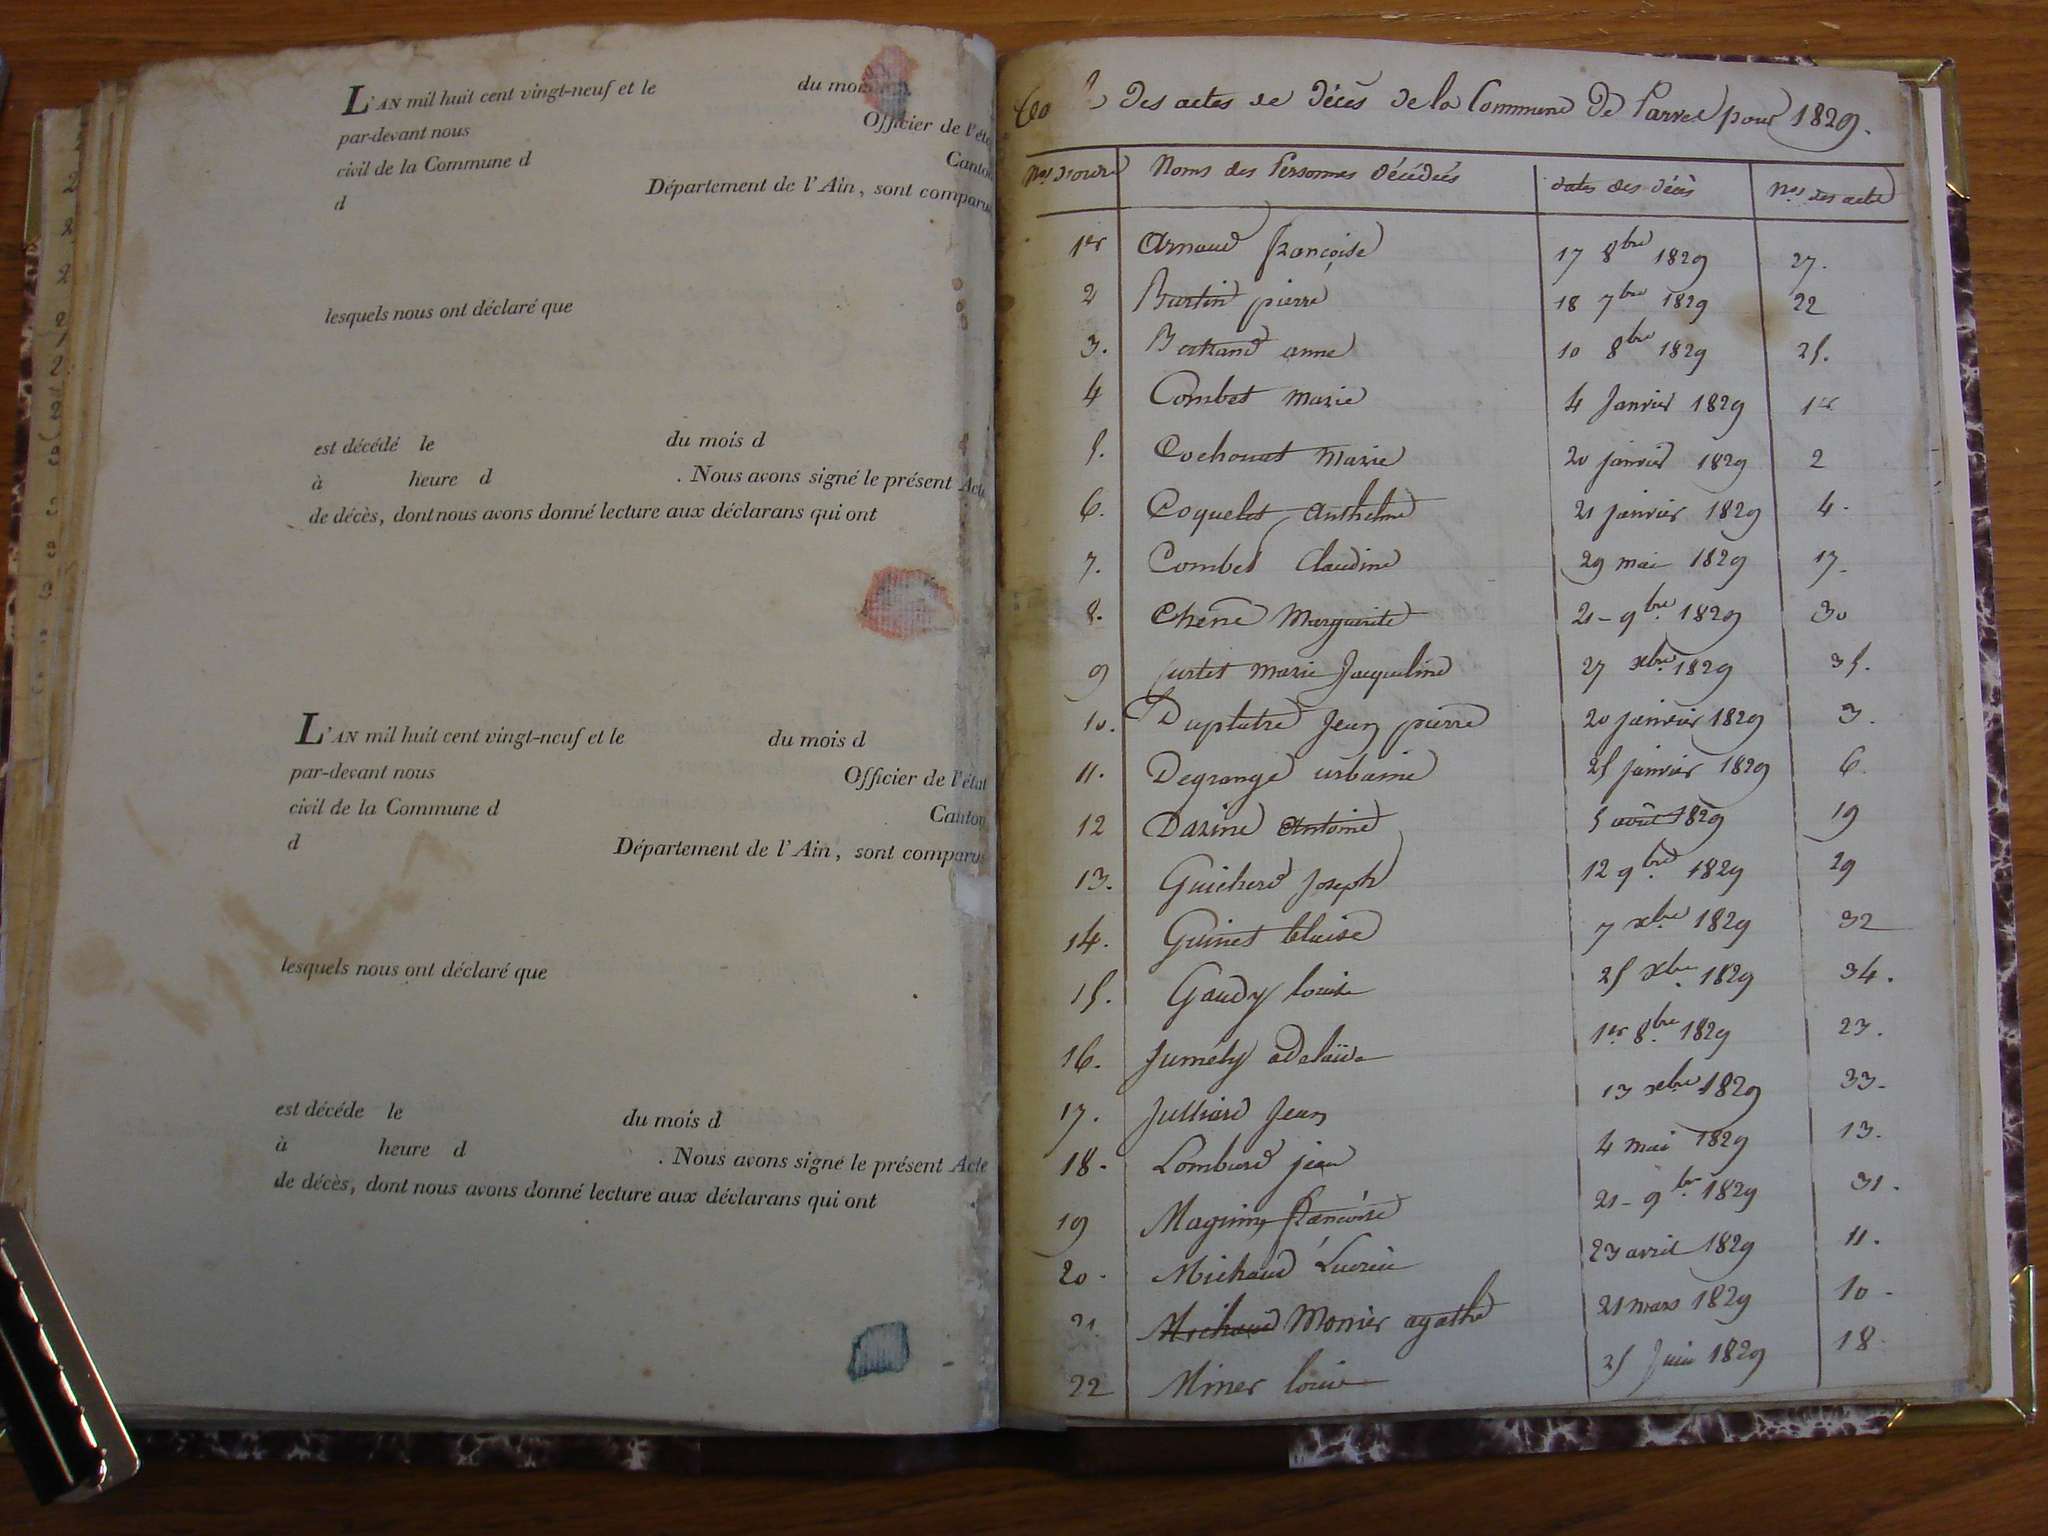 L'AN mil huit cent vingt-neuf et le du mois
par-devant nous Officier de l'état
civil de la Commune d Canton
d Département de l'Ain, sont comparus
lesquels nous ont déclaré que
est décédé le du mois d
à heure d . Nous avons signé le présent Acte
de décès, dont nous avons donné lecture aux déclarans qui ont
L'AN mil huit cent vingt-neuf et le du mois d
par-devant nous Officier de l'état
civil de la Commune d Canton
d Département de l'Ain, sont comparus
lesquels nous ont déclaré que
est décéde le du mois d
à heure d . Nous avons signé le présent Acte
de décès, dont nous avons donné lecture aux déclarans qui ont
des actes de décès de la Commune de Parves pour 1829.
Nos d'ordre Noms des Personnes décédées dates des décès Nos des actes
1er Arnaud françoise 17 8bre 1829 27.
2 Burtin pierre 18 7bre 1829 22
3. Bertrand anne 10 8bre 1829 25.
4 Combet Marie 4 Janvier 1829 1er
5. Cochonat Marie 20 janvier 1829 2
6. Coquelet Anthelme 21 janvier 1829 4.
7. Combet Claudine 29 mai 1829 17.
8. Chêne Marguerite 21 - 9bre 1829 30
9 Curtet Marie Jacqueline 27 xbre 1829 35.
10. Duplatre Jean pierre 20 janvier 1829 3.
11. Degrange urbaine 25 janvier 1829 6.
12 Darine Antoine 5 août 1829 19
13. Guicherd Joseph 12 9bre 1829 29
14. Guinet blaise 7 xbre 1829 32
15. Gaudy louise 25 xbre 1829 34.
16. Jumely adelaïde 1er 8bre 1829 23.
17. Julliard Jean 13 xbre 1829 33.
18. Lombard jean 4 mai 1829 13.
19 Magnin françoise 21 - 9bre 1829 31.
20. Michaud 23 avril 1829 11.
21. Michaud Monier agathe 21 mars 1829 10.
22 Miner louise 25 Juin 1829 18.